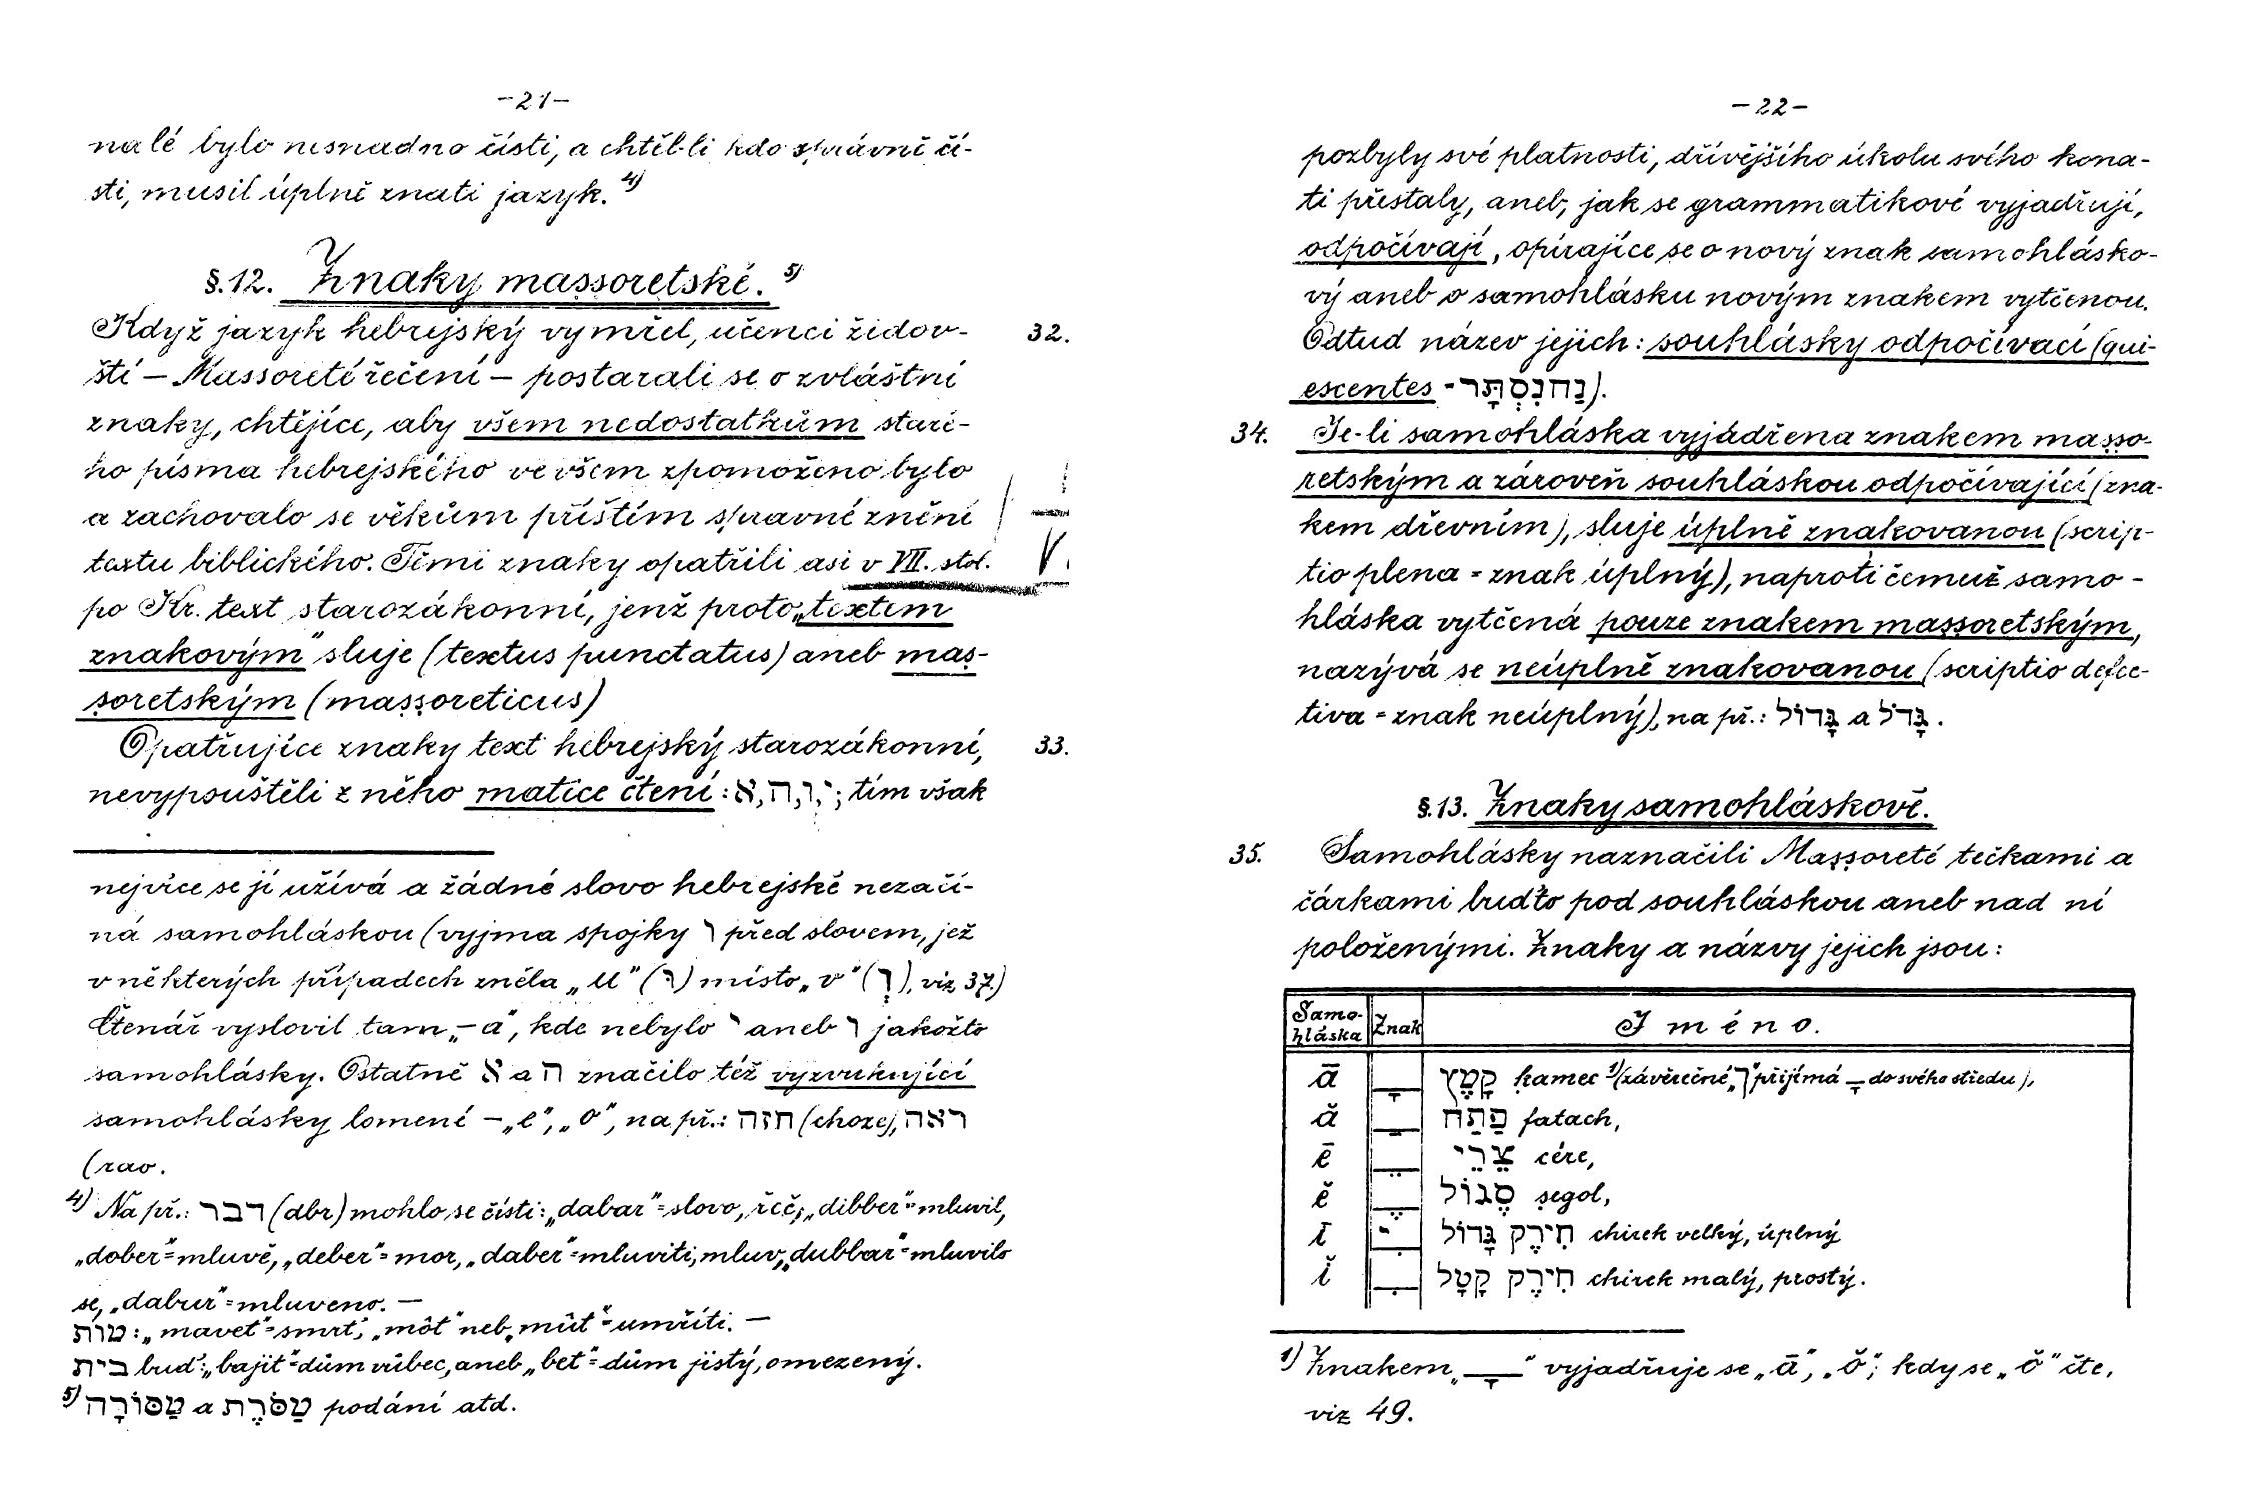 -21-
nalé bylo nesnadno čísti, a chtěl-li kdo správně čí-
sti, musil úplně znati jazyk. 4)
§.12. Znaky massoretské. 5)
Když jazyk hebrejský vymřel, učenci židov-
32.
ští – Massoreté řečení – postarali se o zvláštní
znaky, chtějíce, aby všem nedostatkům staré-
ho písma hebrejského ve všem zpomoženo bylo
a zachovalo se věkům příštím správné znění
textu biblického. Těmi znaky opatřili asi v VII. stol.
po Kr. text starozákonní, jenž proto „textem
znakovým" sluje (textus punctatus) aneb mas-
soretským (massoreticus)
Opatřujíce znaky text hebrejský starozákonní,
33.
nevypouštěli z něho matice čtení: א, ה, ו, י; tím však
nejvíce se jí užívá a žádné slovo hebrejské nezačí-
ná samohláskou (vyjma spojky ו před slovem, jež
v některých případech zněla „u" (וּ) místo „v" (וְ), viz 37.)
Čtenář vyslovil tam „–a", kde nebylo י aneb ו jakožto
samohlásky. Ostatně א a ה značilo též vyzvukující
samohlásky lomené – „e", „o", na př.: חזה (choze), ראה
(rao.
4) Na př.: דבר (dbr) mohlo se čísti: „dabar"=slovo, řeč; „dibber"=mluvil,
„dober"=mluvě, „deber"=mor, „daber"=mluviti, mluv, „dubbar"=mluvilo
se, „dabur"=mluveno. –
מות: „mavet"=smrt, „môt" neb „mût"=umříti. –
בית buď: „bajit"=dům vůbec, aneb „bet"=dům jistý, omezený.
5) מַסּוֹרָה a מַסֹּרֶת podání atd.
-22-
pozbyly své platnosti, dřívějšího úkolu svého kona-
ti přestaly, aneb, jak se grammatikové vyjadřují,
odpočívají, opírajíce se o nový znak samohlásko-
vý aneb o samohlásku novým znakem vytčenou.
Odtud název jejich: souhlásky odpočívací (qui-
escentes - נַח נִסְתָּר).
34. Je-li samohláska vyjádřena znakem masso-
retským a zároveň souhláskou odpočívající (zna-
kem dřevním), sluje úplně znakovanou (scrip-
tio plena = znak úplný), naproti čemuž samo-
hláska vytčená pouze znakem massoretským,
nazývá se neúplně znakovanou (scriptio defec-
tiva = znak neúplný), na př.: גָּדוֹל a גָּדֹל.
§.13. Znaky samohláskové.
35. Samohlásky naznačili Massoreté tečkami a
čárkami buďto pod souhláskou aneb nad ní
položenými. Znaky a názvy jejich jsou:
Samo-hláska Znak Jméno.
ā ָ קָמֶץ kamec 1) (závěrečné „ך" přijímá ָ do svého středu),
ă ַ פַּתַח fatach,
ē ֵ צֵרֵי cére,
ĕ ֶ סֶגוֹל segol,
ī ִי חִירֶק גָּדוֹל chirek velký, úplný
ĭ ִ חִירֶק קָטָל chirek malý, prostý.
1) Znakem „ָ" vyjadřuje se „ā", „ŏ"; kdy se „ŏ" čte,
viz 49.